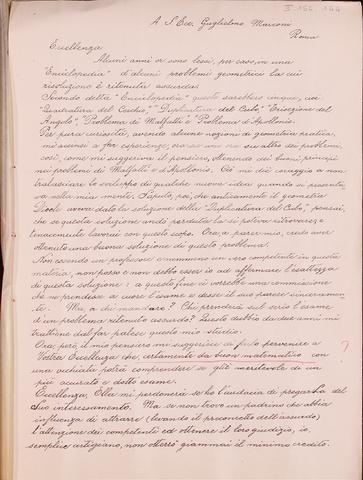 A S. Ecc. Guglielmo Marconi
Roma
Eccellenza
Alcuni anni or sono lessi, per caso, in una
"Enciclopedia" d'alcuni problemi geometrici la cui
risoluzione è ritenuta assurda.
Secondo detta "Enciclopedia" questi sarebbero cinque, cioè
"Quadratura del Cerchio", "Duplicatura del Cubo", "Trisezione del
Angolo", "Problema di Malfatti" e "Problema d'Apollonio".
Per pura curiosità, avendo alcune nozioni di geometria pratica,
mi accinsi a far esperienze, ora su uno ora su altro dei problemi,
così, come mi suggeriva il pensiero, ottenendo dei buoni principi
nei problemi di Malfatti e d'Apollonio. Ciò mi diè coraggio a non
tralasciare lo sviluppo di qualche nuova idea quando si presenta
va nella mia mente. Saputo, poi, che anticamente il geometra
Diocle aveva dato la soluzione della "Duplicatura del Cubo", pensai,
che se questa soluzione andò perduta la si poteva ritrovare, e
tenacemente lavorai con questo scopo. Ora, a parer mio, credo aver
ottenuto una buona soluzione di questo problema.
Non essendo un professore e nemmeno un vero competente in questa
materia, non posso e non debbo esser io ad affermare l'esattezza
di questa soluzione: a questo fine ci vorrebbe una commissione
che ne prendesse a cuore l'esame e desse il suo parere sinceramen
te. Ma, a chi mandare? Chi prenderà sul serio l'esame
d'un problema ritenuto assurdo? Questo dubbio da due anni mi
trattiene dal far palese questo mio studio.
Ora, però, il mio pensiero mi suggerisce di farlo pervenire a
Vostra Eccellenza che, certamente da buon matematico con
una occhiata potrà comprendere se già meritevole di un
più accurato e dotto esame.
Eccellenza, Ella mi perdonerà se ho l'audacia di pregarla del
Suo interessamento. Ma se non trovo un padrino che abbia
influenza di attrarre (levando il preconcetto dell'assurdo)
l'attenzione dei competenti ed ottenere il loro giudizio, io,
semplice artigiano, non otterrò giammai il minimo credito.